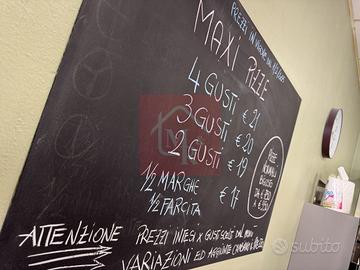 PREZZI IN VIGORE DAL
MAXI PIZZE
4 GUSTI € 21
3 GUSTI € 20
2 GUSTI € 19
1/2 MARGHE
1/2 FARCITA € 17
PIZZE
ATTENZIONE PREZZI INTESI X GUSTI SCELTI DAL MENÙ
VARIAZIONI ED AGGIUNTE CAMBIANO IL PREZZO
subito